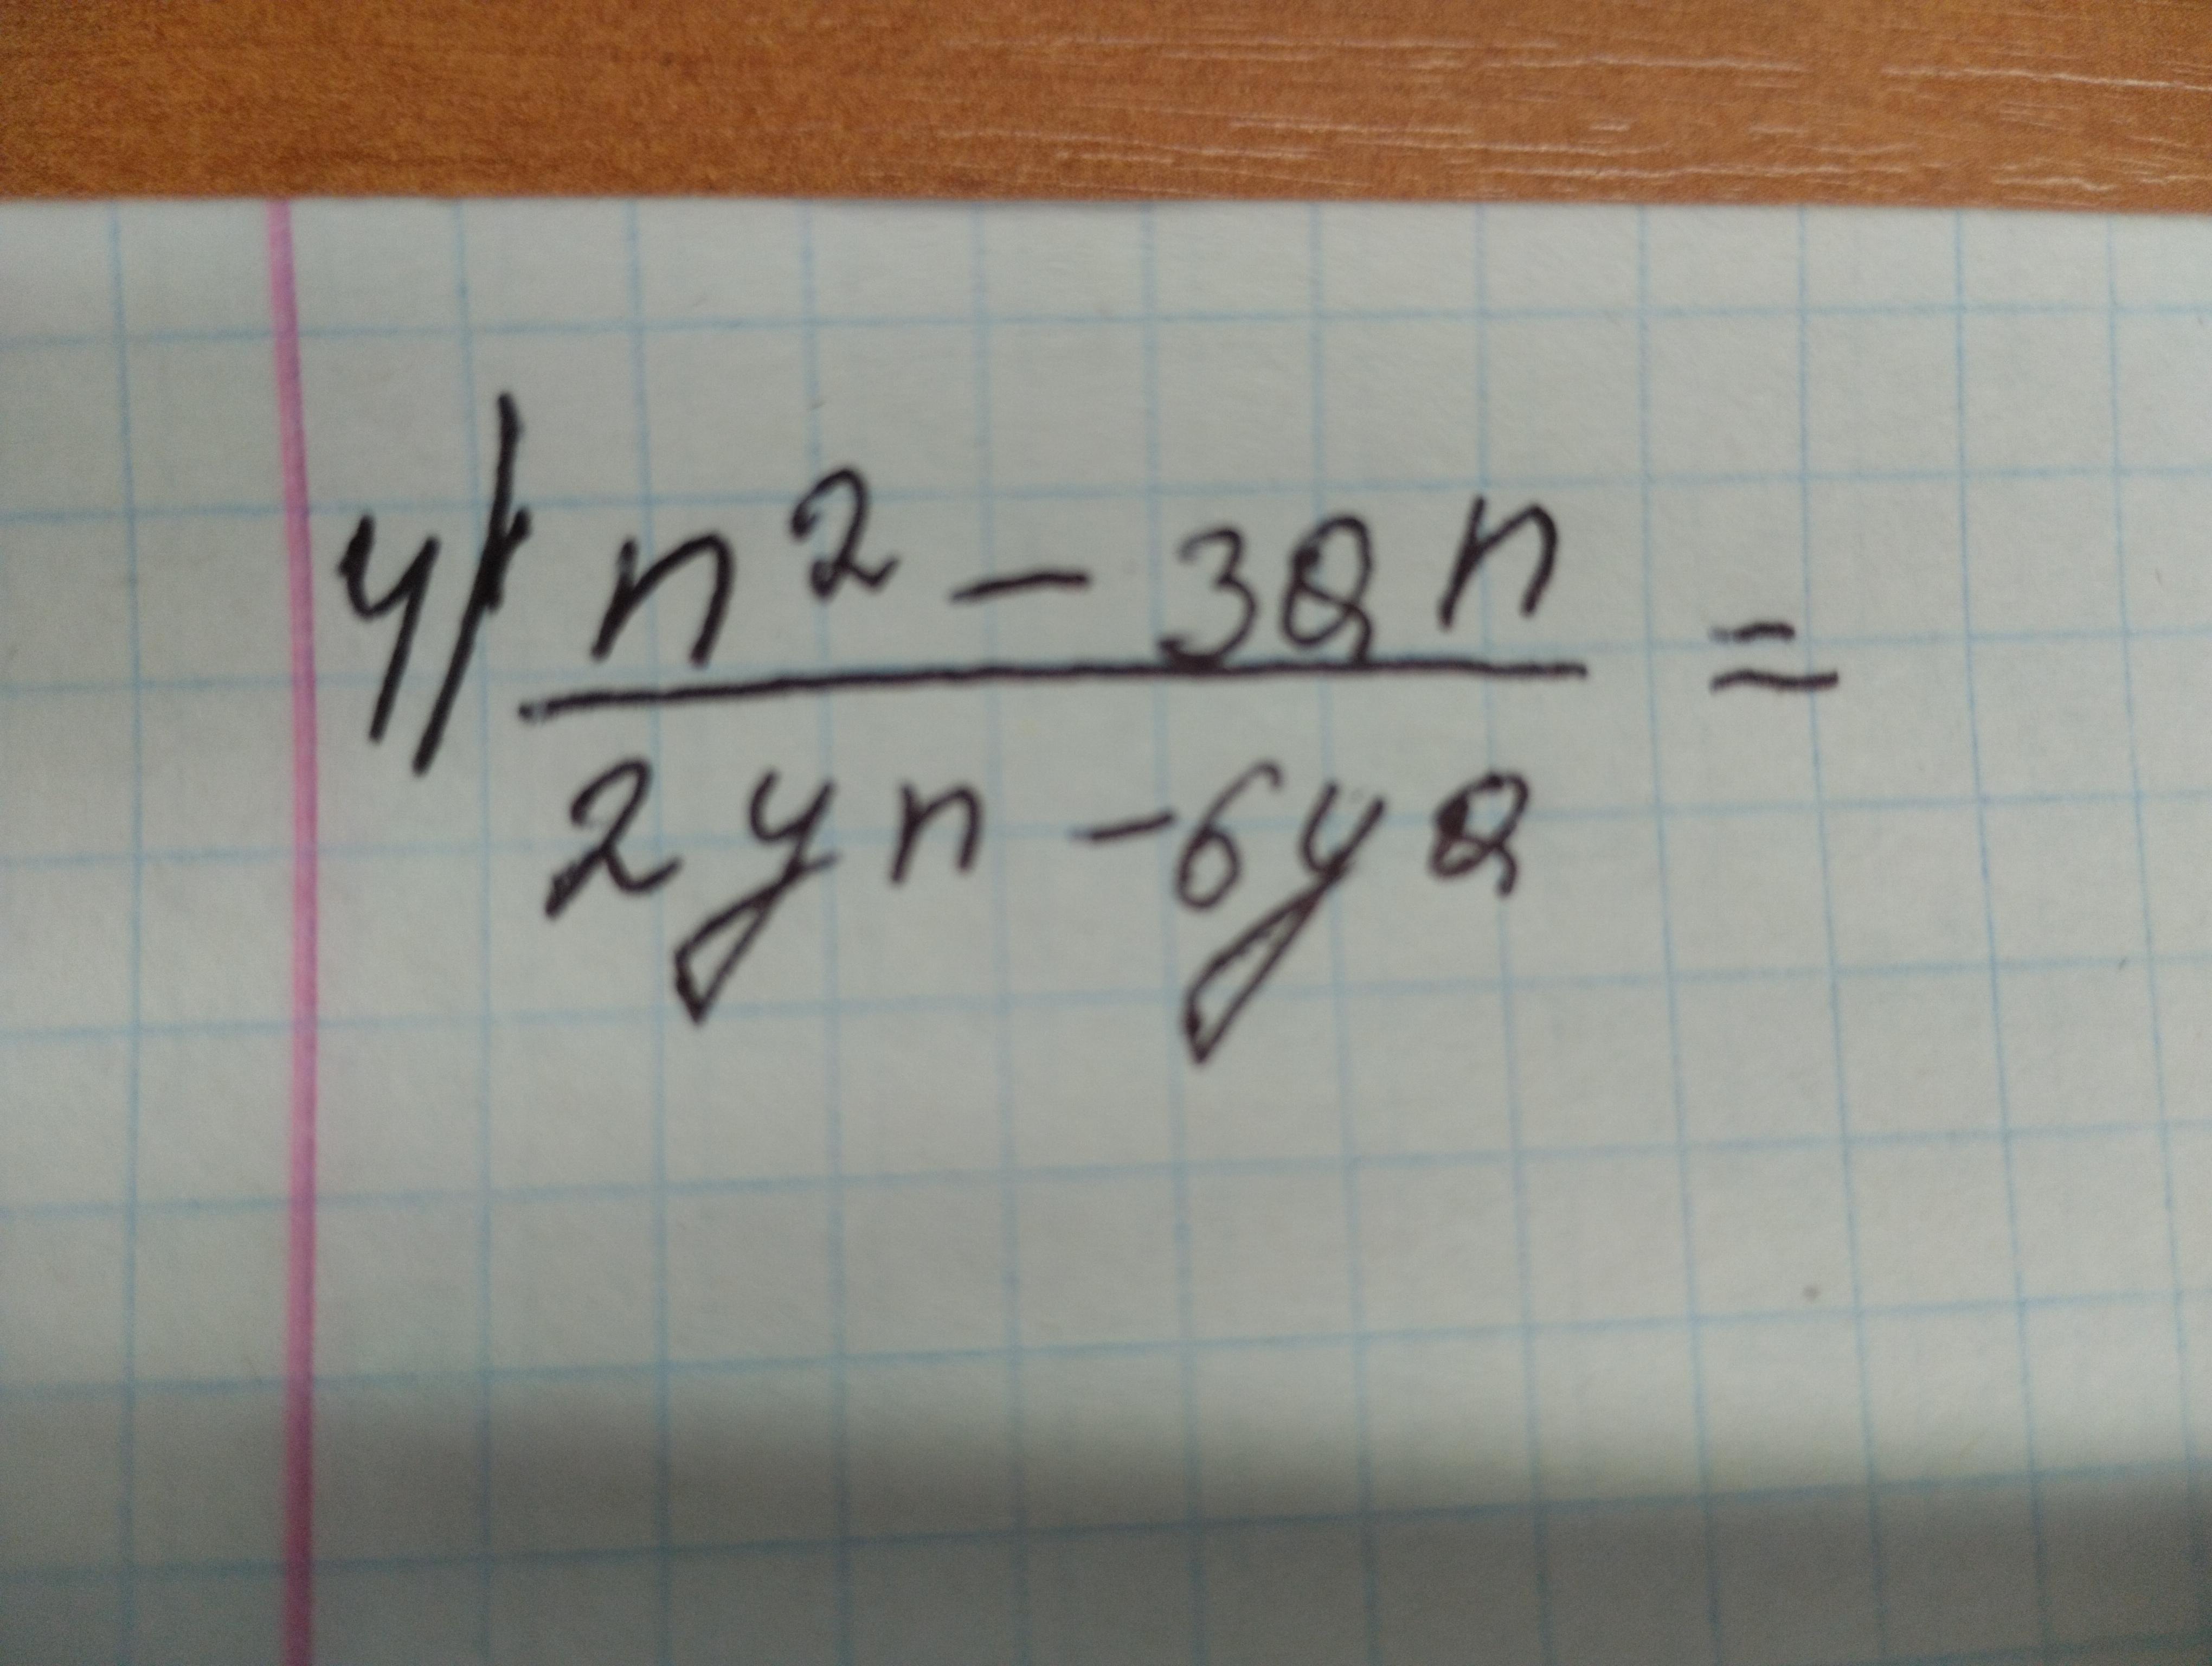 4) n² - 3Qn =
2yn - 6yQ